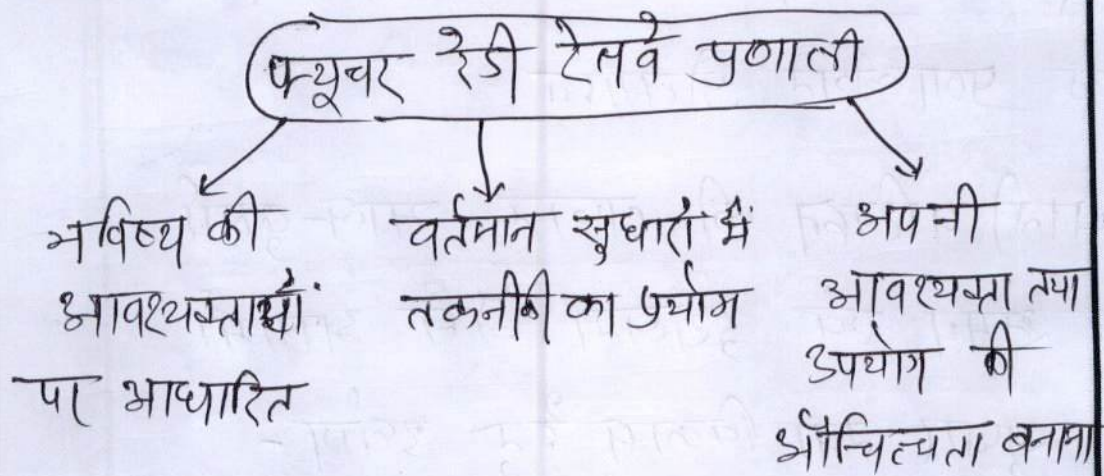 फ्यूचर रेडी रेलवे प्रणाली
भविष्य की
आवश्यक्ताओं
पर आधारित
वर्तमान सुधारों में
तकनीकी का प्रयोग
अपनी
आवश्यक्ता तथा
उपयोग की
औचित्यता बनाना